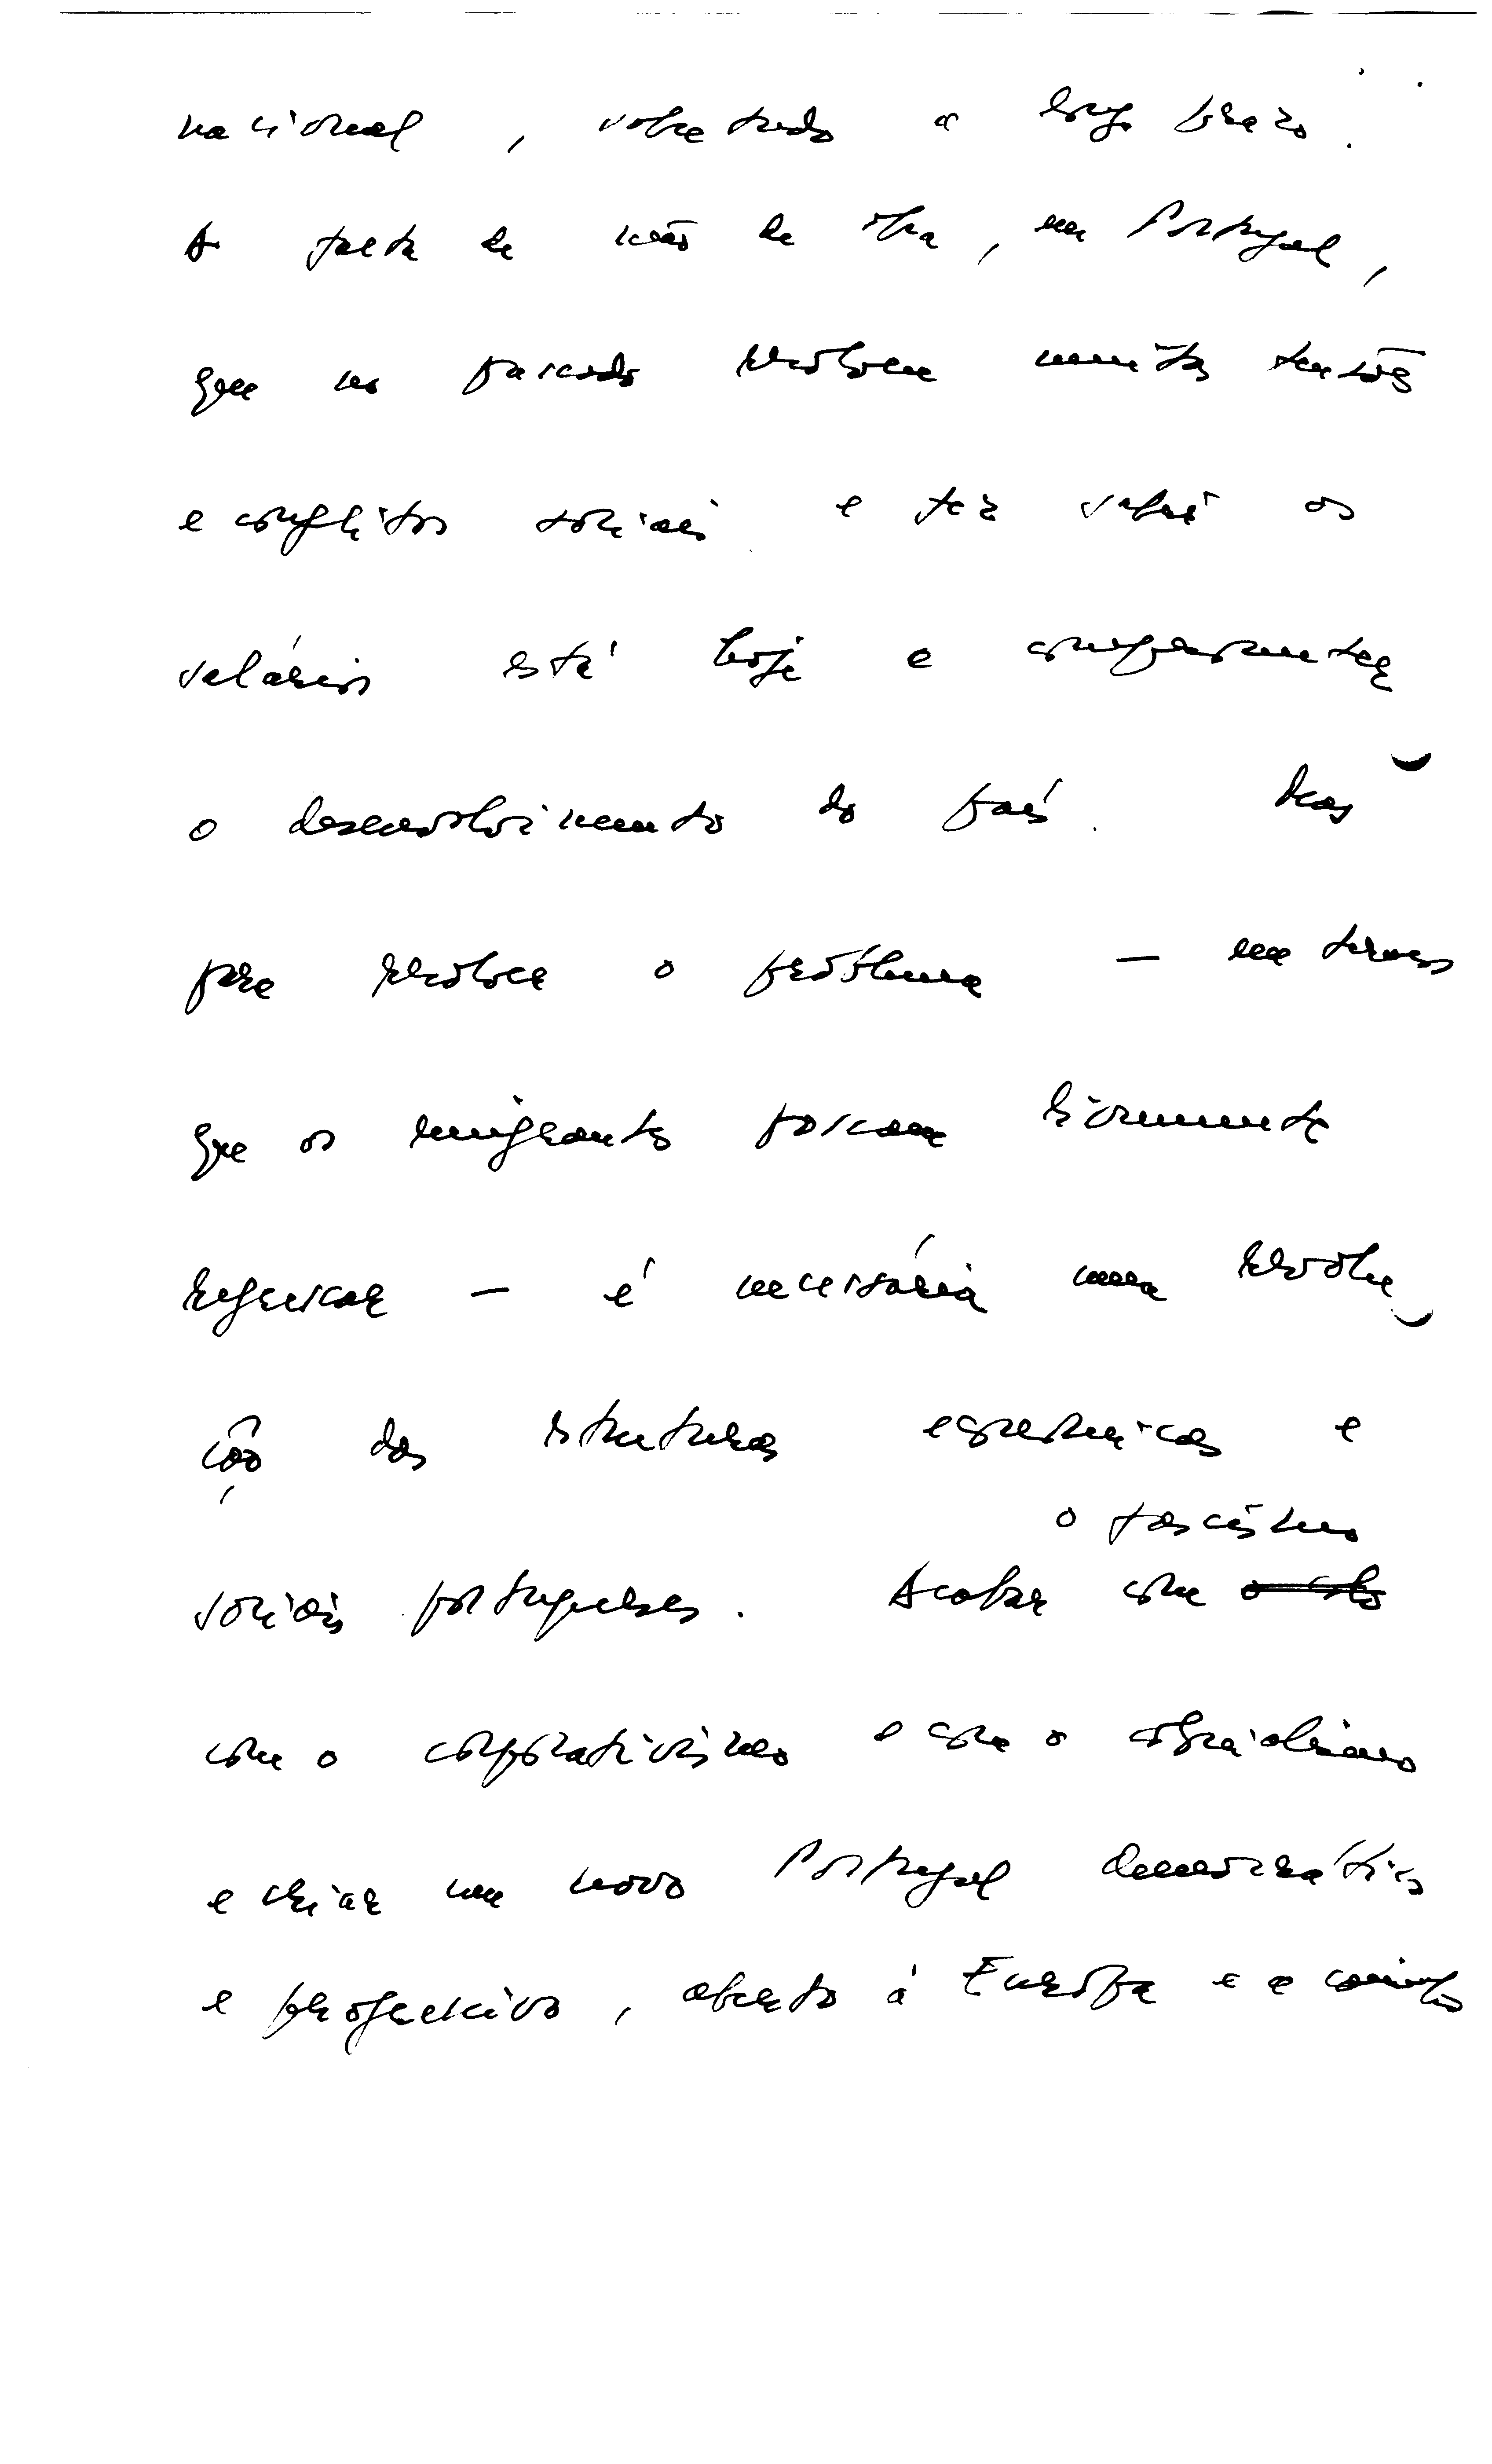 nacional, sobretudo a longo prazo.
A falta de mão de obra, em Portugal,
que no passado resolveu muitas tensões
e conflitos sociais e fez subir os
salários está hoje a comprometer
o desenvolvimento do país. Mas
para resolver o problema — em termos
que os emigrantes possam livremente
regressar — é necessária uma revolu
ção das estruturas económicas e
o fascismo
sociais portuguesas. Acabar com
com o corporativismo e com o colonialismo
e criar um novo Portugal democrático
e progressivo, aberto à Europa e a